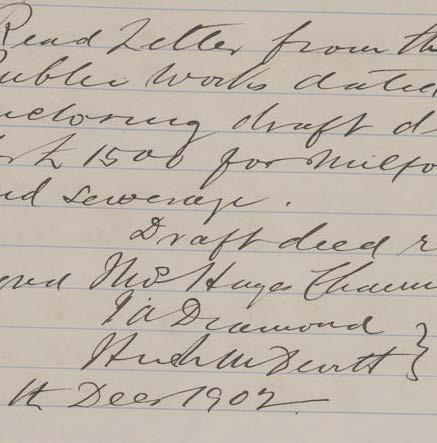 Read Letter from th
Public Works dated
nclosing draft d
£1500 for Milfo
nd sewerage.
Draft deed r
gned Thos Hayes Chairm
Diamond
Hugh McDevitt }
th Decr 1902